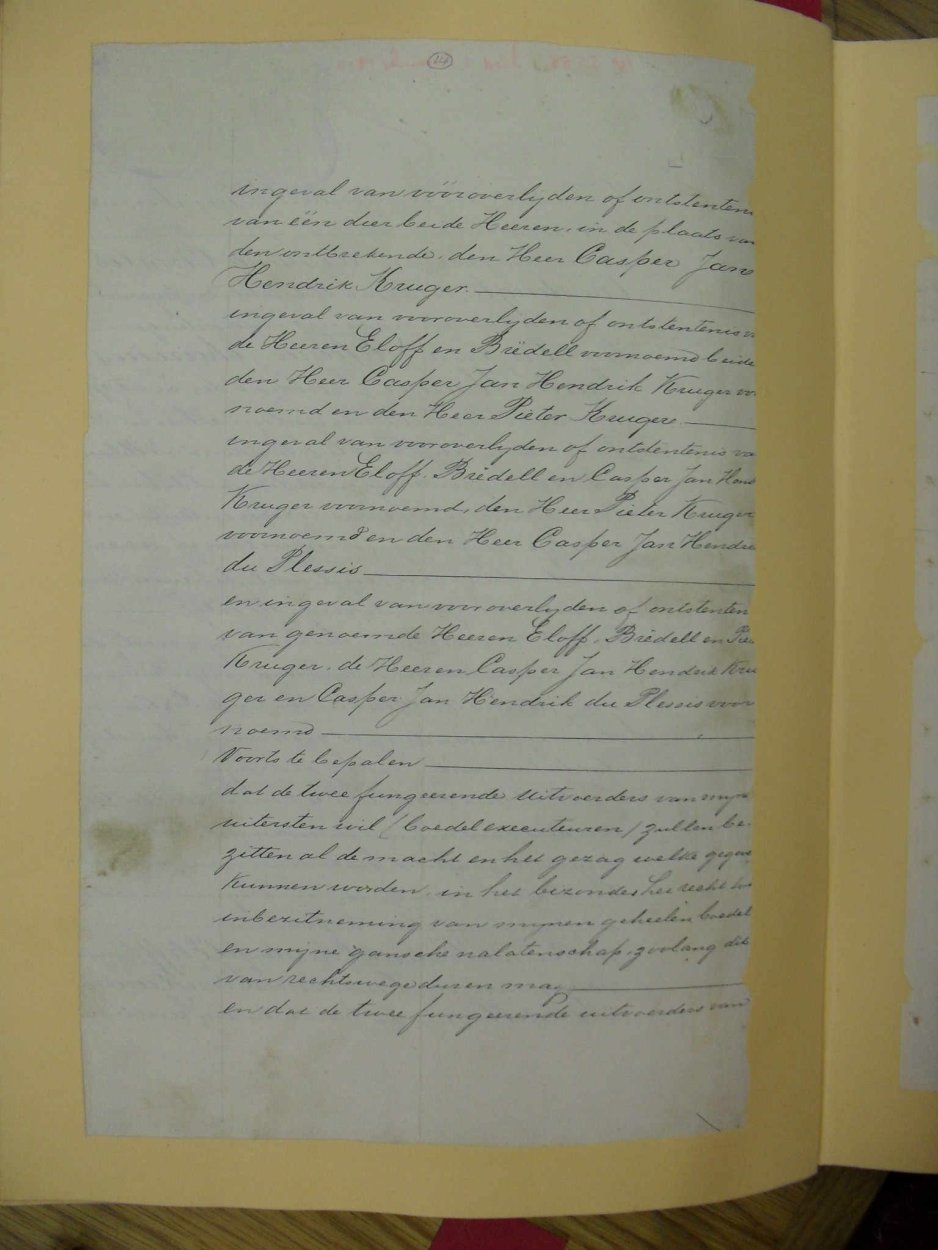 24
ingeval van vóóroverlijden of ontstenten
van één dier beide Heeren, in de plaats van
den ontbrekende, den Heer Casper Jans
Hendrik Kruger
ingeval van vooroverlijden of ontstentenis v
de Heeren Eloff en Brëdell voornoemd beide
den Heer Casper Jan Hendrik Kruger voo
noemd en den Heer Pieter Kruger
ingeval van vooroverlijden of ontstentenis va
de Heeren Eloff, Brëdell en Casper Jan Hend
Kruger voornoemd, den Heer Pieter Kruger
voornoemd en den Heer Casper Jan Hendri
du Plessis
en ingeval van vooroverlijden of ontstenten
van genoemde Heeren Eloff, Brëdell en Pie
Kruger, de Heeren Casper Jan Hendrik Kru
ger en Casper Jan Hendrik du Plessis voor
noemd
Voorts te bepalen
dat de twee fungeerende uitvoerders van mijn
uitersten wil (boedel executeuren) zullen be-
zitten al de macht en het gezag welke gegeve
kunnen worden, in het bizonder het recht to
inbezitneming van mijnen geheelen boedel
en mijne gansche nalatenschap, zoolang dit
van rechtswege duren mag
en dat de twee fungeerende uitvoerders van